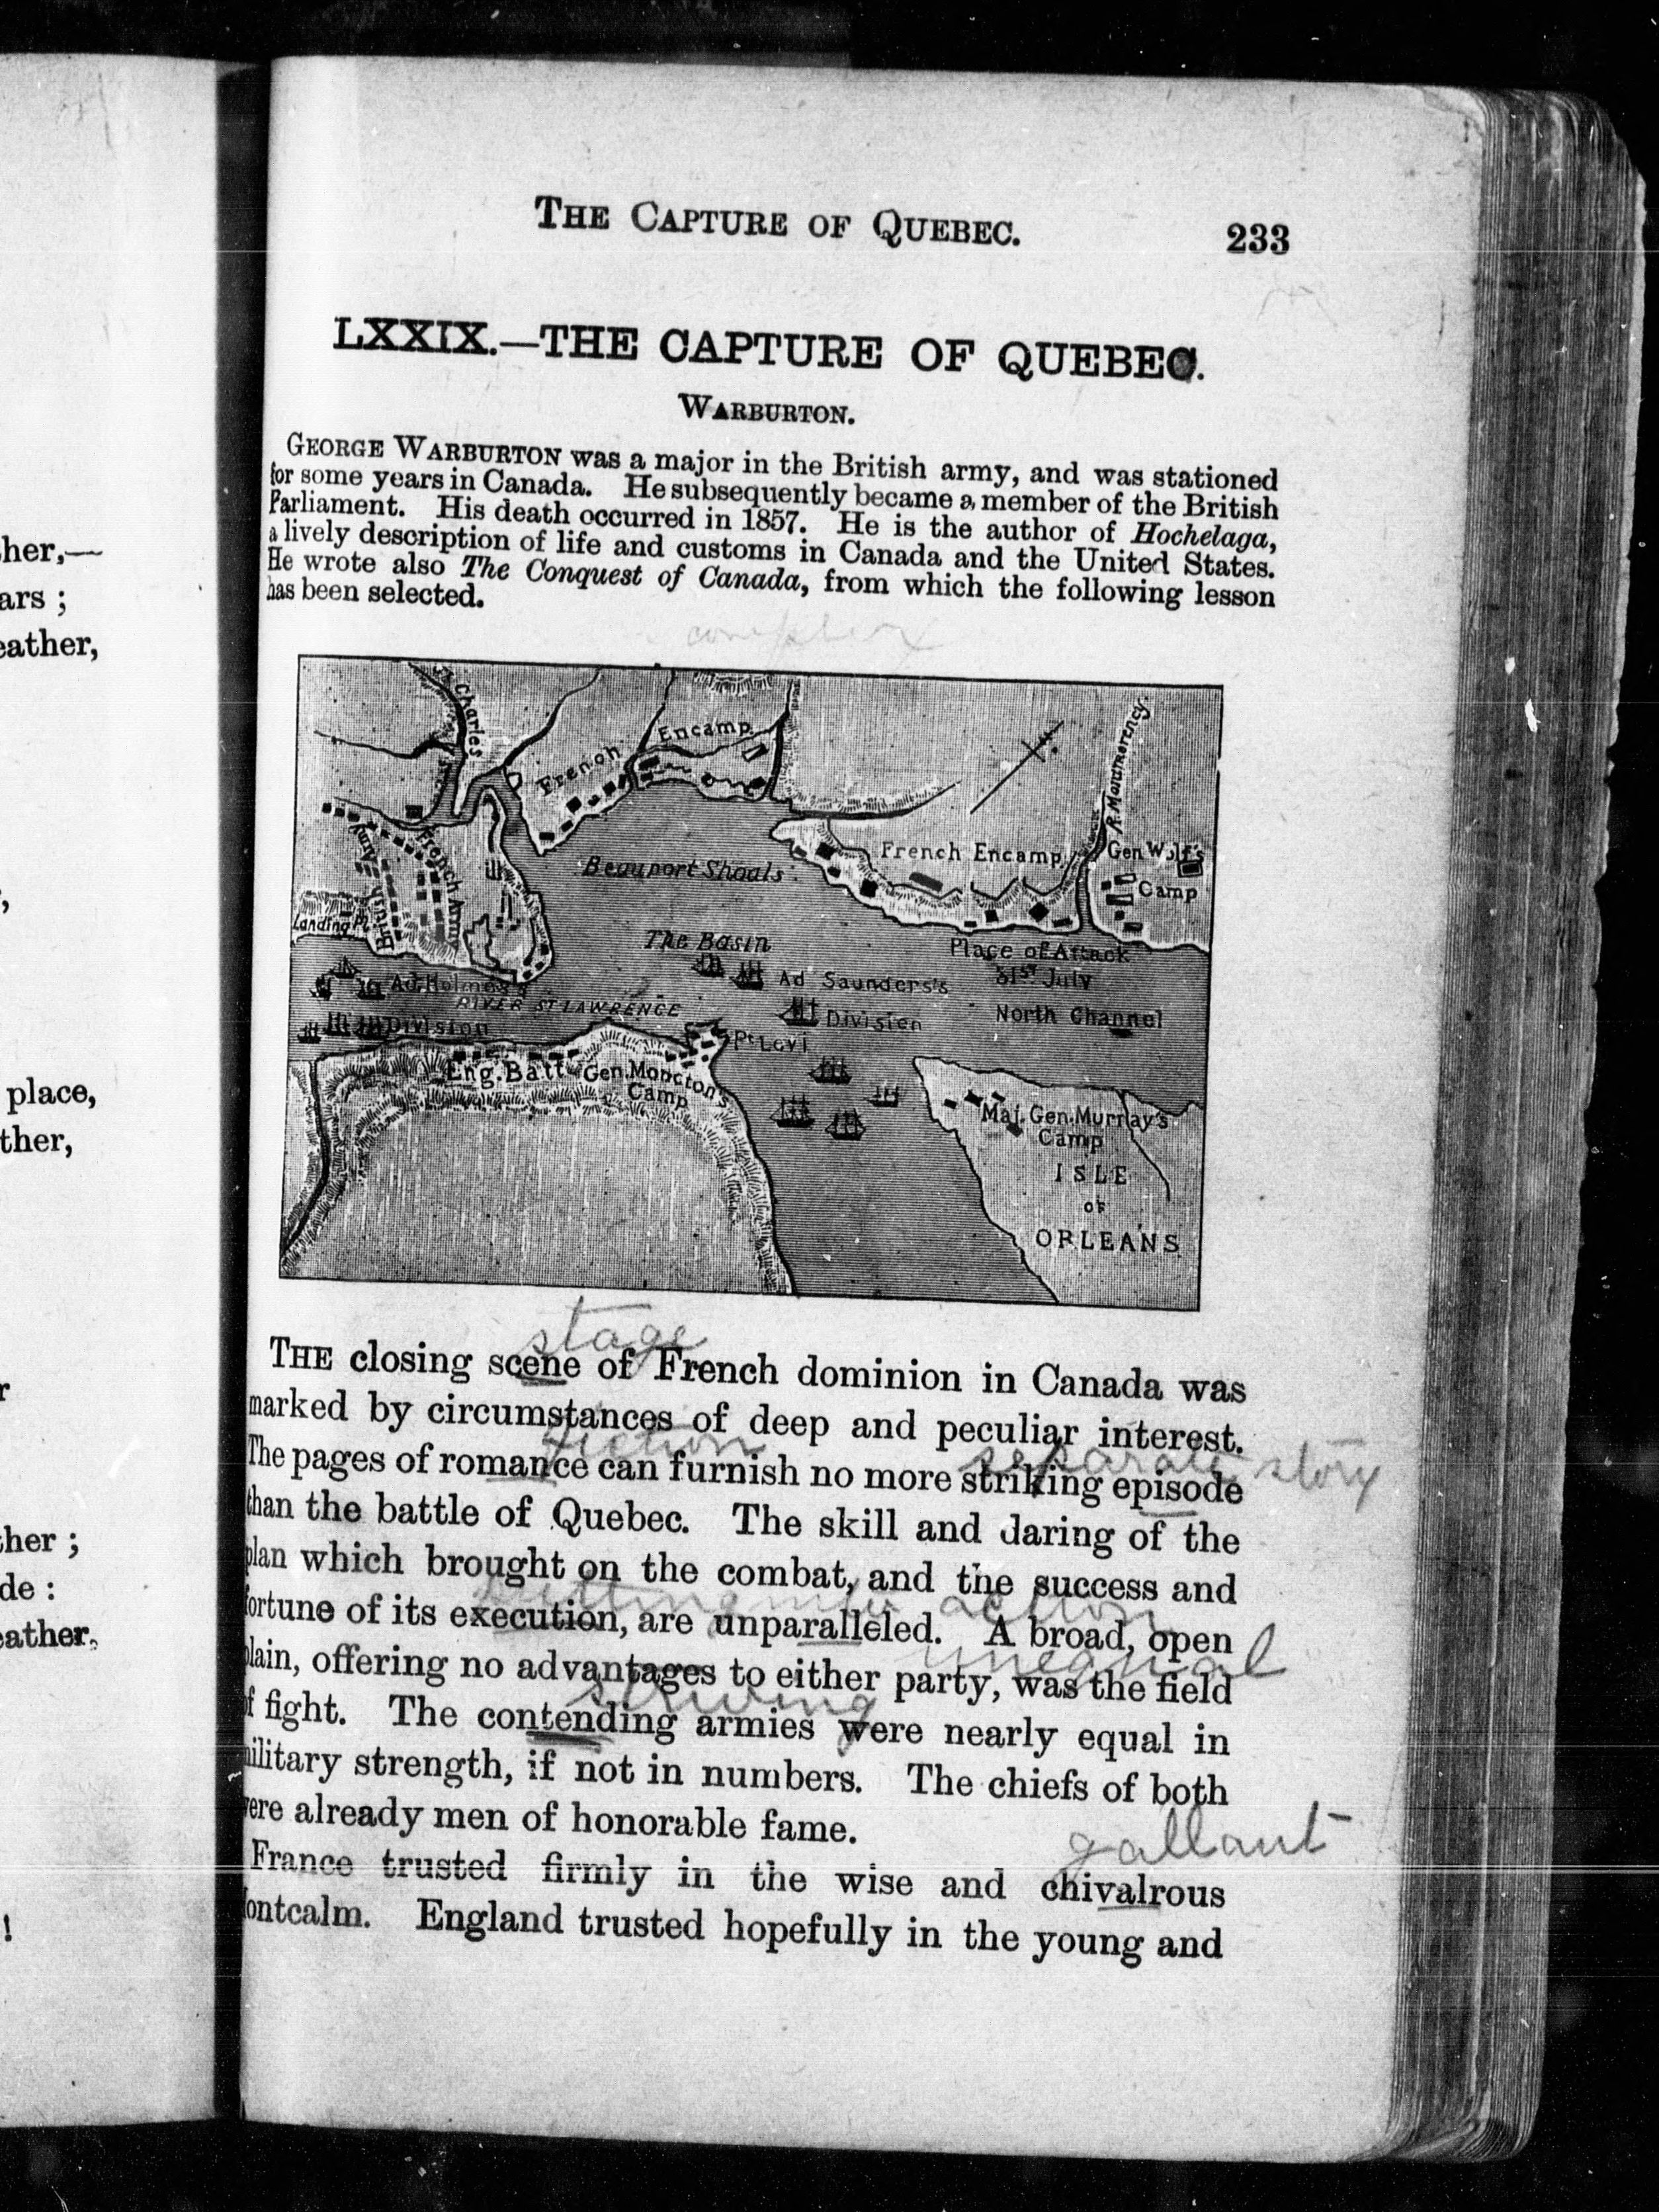 her,—
ars ;
eather,
,
place,
ther,
r
ther ;
de :
eather,
!
THE CAPTURE OF QUEBEC. 233
LXXIX.—THE CAPTURE OF QUEBEC.
WARBURTON.
GEORGE WARBURTON was a major in the British army, and was stationed
for some years in Canada. He subsequently became a member of the British
Parliament. His death occurred in 1857. He is the author of Hochelaga,
a lively description of life and customs in Canada and the United States.
He wrote also The Conquest of Canada, from which the following lesson
has been selected.
St Charles
French Encamp.
R. Montmorency.
French Army
British Army
Landing Pl.
Beauport Shoals.
French Encamp.
Gen Wolf's
Camp
The Basin
Place of Attack
31st July
Ad. Holmes's
Division
RIVER ST LAWRENCE
Ad Saunders's
Division
North Channel
Pt Levi
Eng. Batt
Gen. Moncton's
Camp
Maj. Gen. Murray's
Camp
ISLE
OF
ORLEANS
stage
THE closing scene of French dominion in Canada was
marked by circumstances of deep and peculiar interest.
fiction separate story
The pages of romance can furnish no more striking episode
than the battle of Quebec. The skill and daring of the
plan which brought on the combat, and the success and
putting into action
fortune of its execution, are unparalleled. A broad, open
unequal
plain, offering no advantages to either party, was the field
striving
of fight. The contending armies were nearly equal in
military strength, if not in numbers. The chiefs of both
were already men of honorable fame.
gallant
France trusted firmly in the wise and chivalrous
Montcalm. England trusted hopefully in the young and